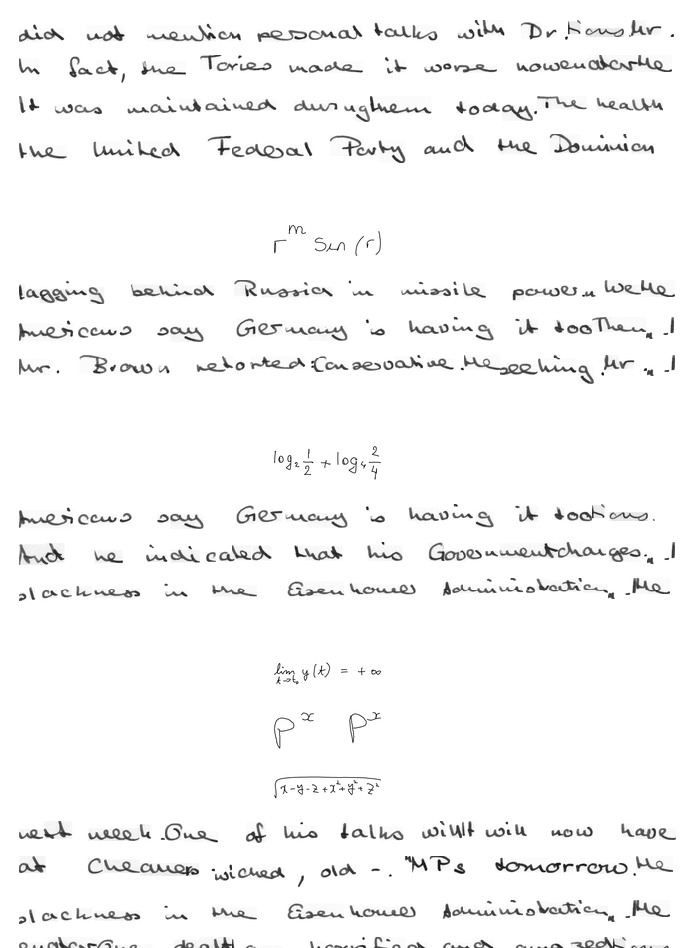 did not mention personal talks with Dr. tions Mr.
In fact, the Tories made it worse now and at the
It was maintained during them today. The health
the United Federal Party and the Dominion
r^m sin (r)
lagging behind Russia in missile power. We He
Americans say Germany is having it too Then I
Mr. Brown retorted: Conservative. He seeking Mr I
log_2 \frac{1}{2} + log_4 \frac{2}{4}
Americans say Germany is having it too tions.
And he indicated that his Government charges. I
slackness in the Eisenhower Administration. He
\lim_{t \to t_0} y(t) = + \infty
p^x p^x
\sqrt{x-y-z+x^2+y^2+z^2}
next week. One of his talks will It will now have
at Chequers wicked, old -. "MPs tomorrow. He
slackness in the Eisenhower Administration. He
dealt horrified and